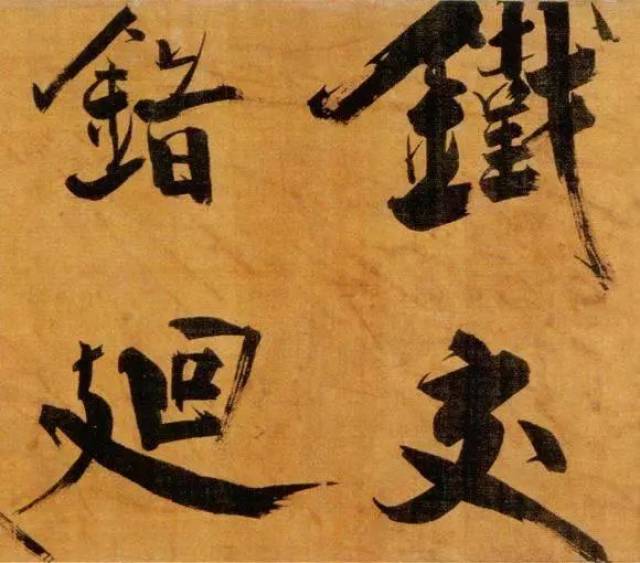 鐵交
錯廻